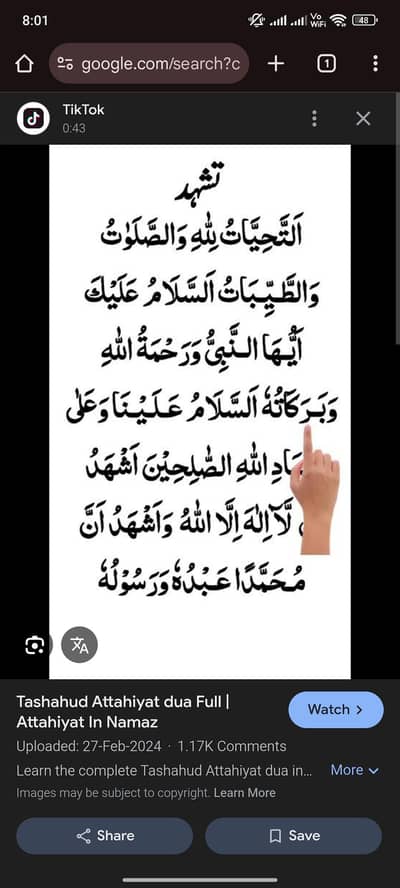 8:01
Vo
WiFi
48
google.com/search?c
1
TikTok
0:43
تشہد
اَلتَّحِيَّاتُ لِلّٰهِ وَالصَّلَوٰتُ
وَالطَّيِّبَاتُ اَلسَّلَامُ عَلَيْكَ
اَيُّهَا النَّبِيُّ وَرَحْمَةُ اللّٰهِ
وَبَرَكَاتُهٗ اَلسَّلَامُ عَلَيْنَا وَعَلٰى
اللّٰهِ الصّٰلِحِيْنَ اَشْهَدُ
لَّآ اِلٰهَ اِلَّا اللّٰهُ وَاَشْهَدُ اَنَّ
مُحَمَّدًا عَبْدُهٗ وَرَسُوْلُهٗ
Tashahud Attahiyat dua Full |
Attahiyat In Namaz
Watch >
Uploaded: 27-Feb-2024 · 1.17K Comments
Learn the complete Tashahud Attahiyat dua in... More
Images may be subject to copyright. Learn More
Share
Save